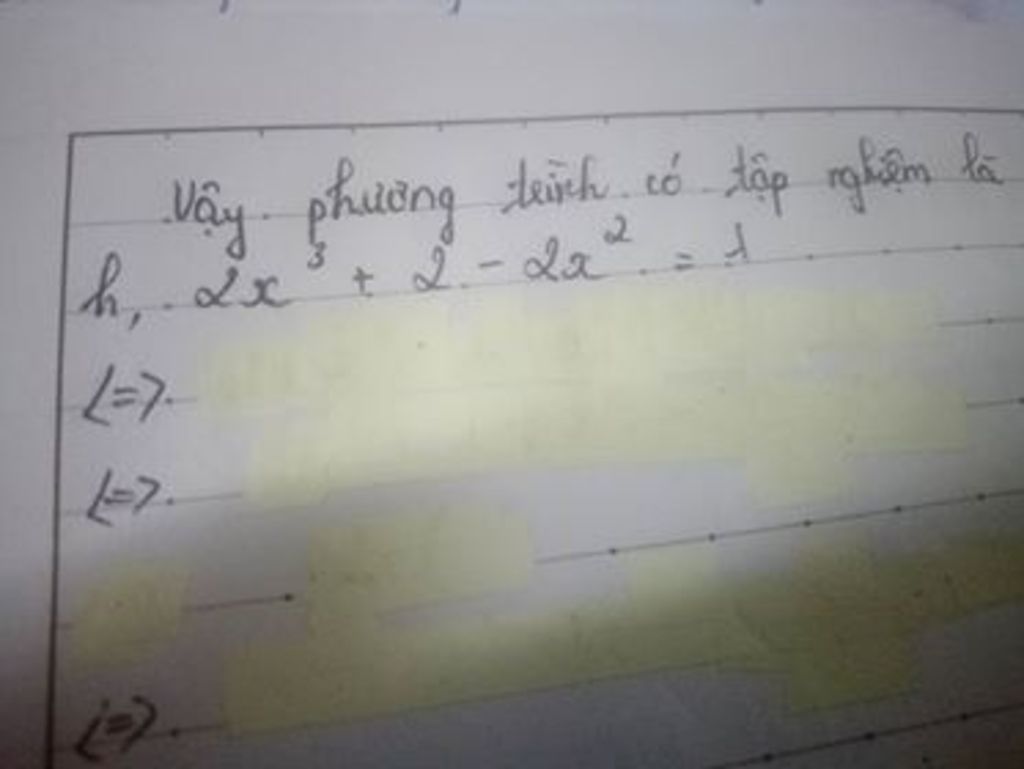 Vậy phương trình có tập nghiệm là
h, 2x³ + 2 - 2x² = 1
<=>
<=>
<=>